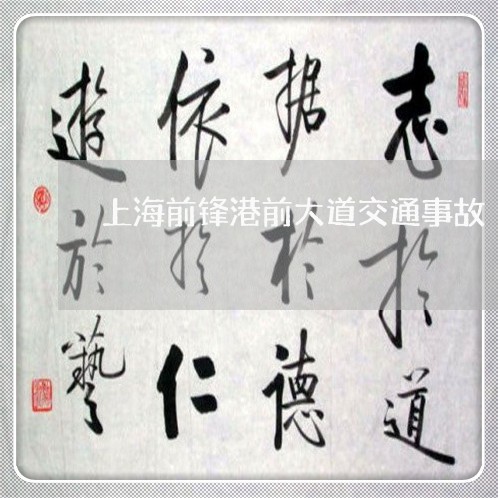 志於道
据於德
依於仁
遊於藝
上海前锋港前大道交通事故